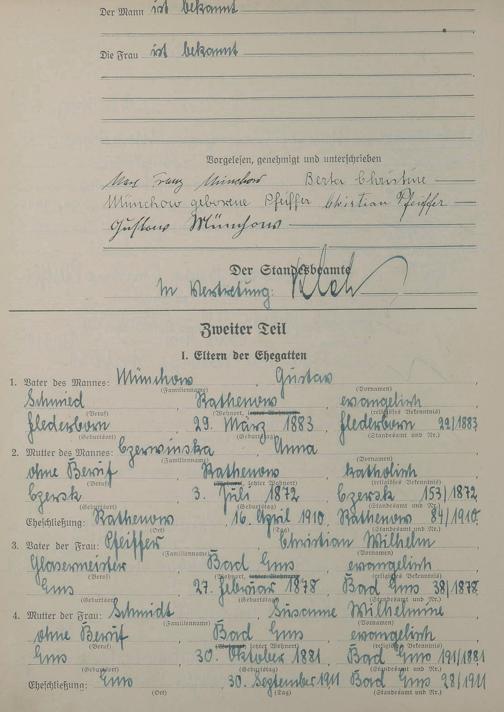 Der Mann ist bekannt
Die Frau ist bekannt
Vorgelesen, genehmigt und unterschrieben
Max Franz Münchow Berta Christine
Münchow geborene Pfeiffer Christian Pfeiffer
Gustav Münchow
Der Standesbeamte
In Vertretung:
Zweiter Teil
I. Eltern der Ehegatten
1. Vater des Mannes: Münchow, Gustav
(Familienname) (Vornamen)
Schmied, Rathenow, evangelisch
(Beruf) (Wohnort, letzter Wohnort) (religiöses Bekenntnis)
Flederborn, 29. März 1883, Flederborn 22/1883
(Geburtsort) (Geburtstag) (Standesamt und Nr.)
2. Mutter des Mannes: Czerwinska, Anna
(Familienname) (Vornamen)
ohne Beruf, Rathenow, katholisch
(Beruf) (Wohnort, letzter Wohnort) (religiöses Bekenntnis)
Czersk, 3. Juli 1872, Czersk 153/1872
(Geburtsort) (Geburtstag) (Standesamt und Nr.)
Eheschließung: Rathenow, 16. April 1910, Rathenow 84/1910.
(Ort) (Tag) (Standesamt und Nr.)
3. Vater der Frau: Pfeiffer, Christian Wilhelm
(Familienname) (Vornamen)
Glasermeister, Bad Ems, evangelisch
(Beruf) (Wohnort, letzter Wohnort) (religiöses Bekenntnis)
Ems, 27. Februar 1878, Bad Ems 38/1878.
(Geburtsort) (Geburtstag) (Standesamt und Nr.)
4. Mutter der Frau: Schmidt, Susanne Wilhelmine
(Familienname) (Vornamen)
ohne Beruf, Bad Ems, evangelisch
(Beruf) (Wohnort, letzter Wohnort) (religiöses Bekenntnis)
Ems, 30. Oktober 1881, Bad Ems 191/1881
(Geburtsort) (Geburtstag) (Standesamt und Nr.)
Eheschließung: Ems, 30. September 1911 Bad Ems 28/1911
(Ort) (Tag) (Standesamt und Nr.)